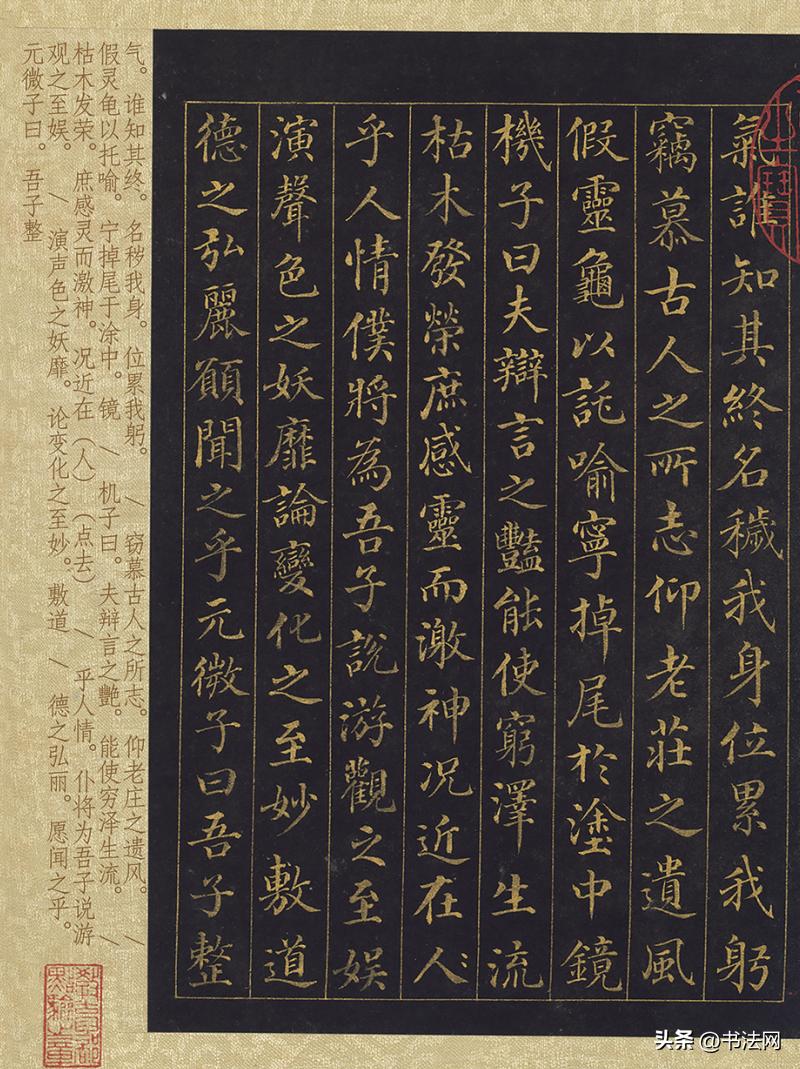 氣誰知其終名穢我身位累我躬
竊慕古人之所志仰老莊之遺風
假靈龜以託喻寧掉尾於塗中鏡
機子曰夫辯言之豔能使窮澤生流
枯木發榮庶感靈而激神况近在人
乎人情僕將為吾子說游觀之至娱
演聲色之妖靡論變化之至妙敷道
德之弘麗願聞之乎元微子曰吾子整
气。谁知其终。名秽我身。位累我躬。/窃慕古人之所志。仰老庄之遗风。/
假灵龟以托喻。宁掉尾于涂中。镜/机子曰。夫辩言之艷。能使穷泽生流。/
枯木发荣。庶感灵而激神。况近在（人）（点去）/乎人情。仆将为吾子说游
观之至娱。/演声色之妖靡。论变化之至妙。敷道/德之弘丽。愿闻之乎。
元微子曰。吾子整
头条 @书法网